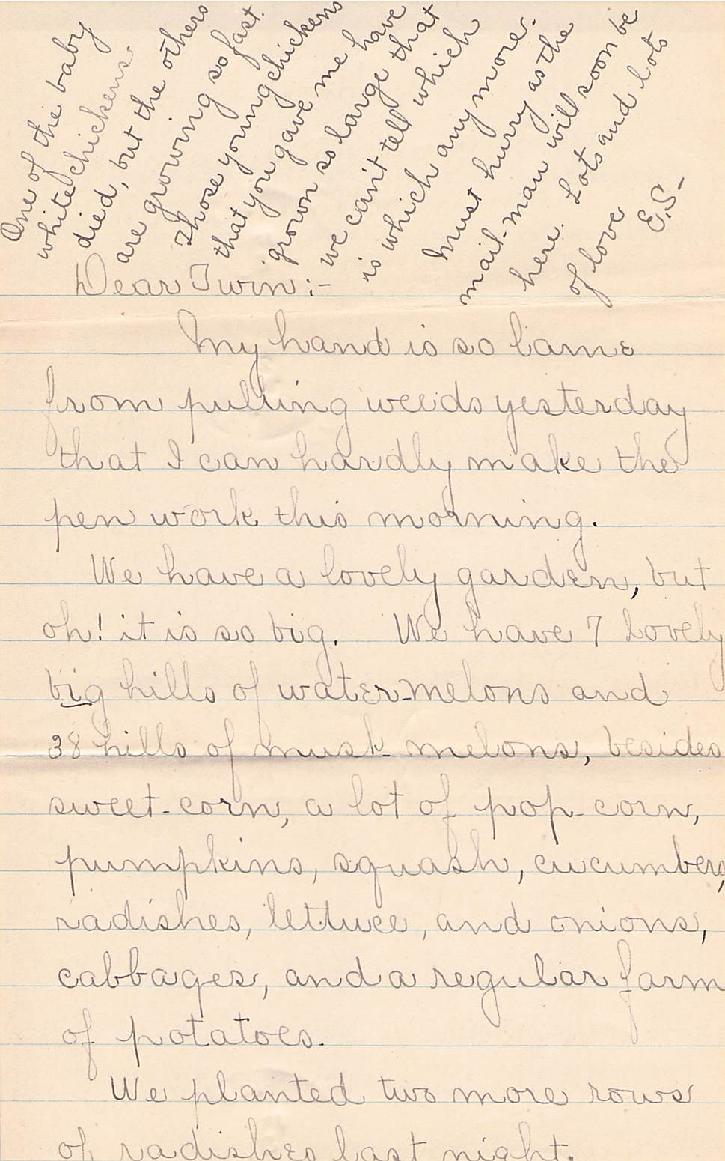 One of the baby
white chickens
died, but the others
are growing so fast.
Those young chickens
that you gave me have
grown so large that
we can't tell which
is which any more.
Must hurry as the
mail-man will soon be
here. Lots and lots
of love
E.S-
Dear Twin:-
My hand is so lame
from pulling weeds yesterday
that I can hardly make the
pen work this morning.
We have a lovely garden, but
oh! it is so big. We have 7 lovely
big hills of water-melons and
38 hills of musk-melons, besides
sweet-corn, a lot of pop-corn,
pumpkins, squash, cucumbers,
radishes, lettuce, and onions,
cabbages, and a regular farm
of potatoes.
We planted two more rows
of radishes last night.